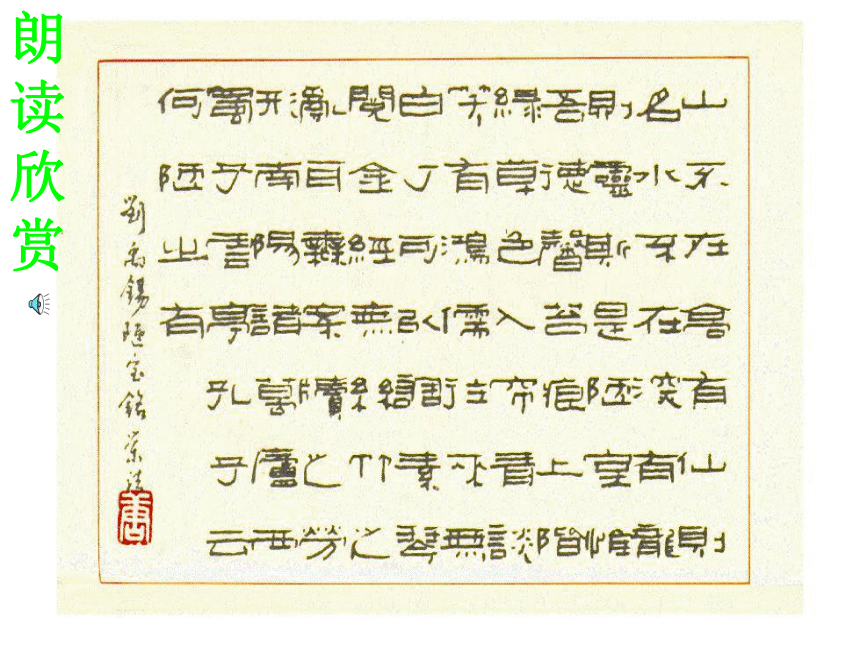 朗读欣赏
山不在高有仙則
名水不在深有龍
則靈斯是陋室惟
吾德馨苔痕上階
綠草色入帘青談
笑有鴻儒往來無
白丁可以調素琴
閱金經無絲竹之
亂耳無案牘之勞
形南陽諸葛廬西
蜀子雲亭孔子云
何陋之有
劉禹錫陋室銘